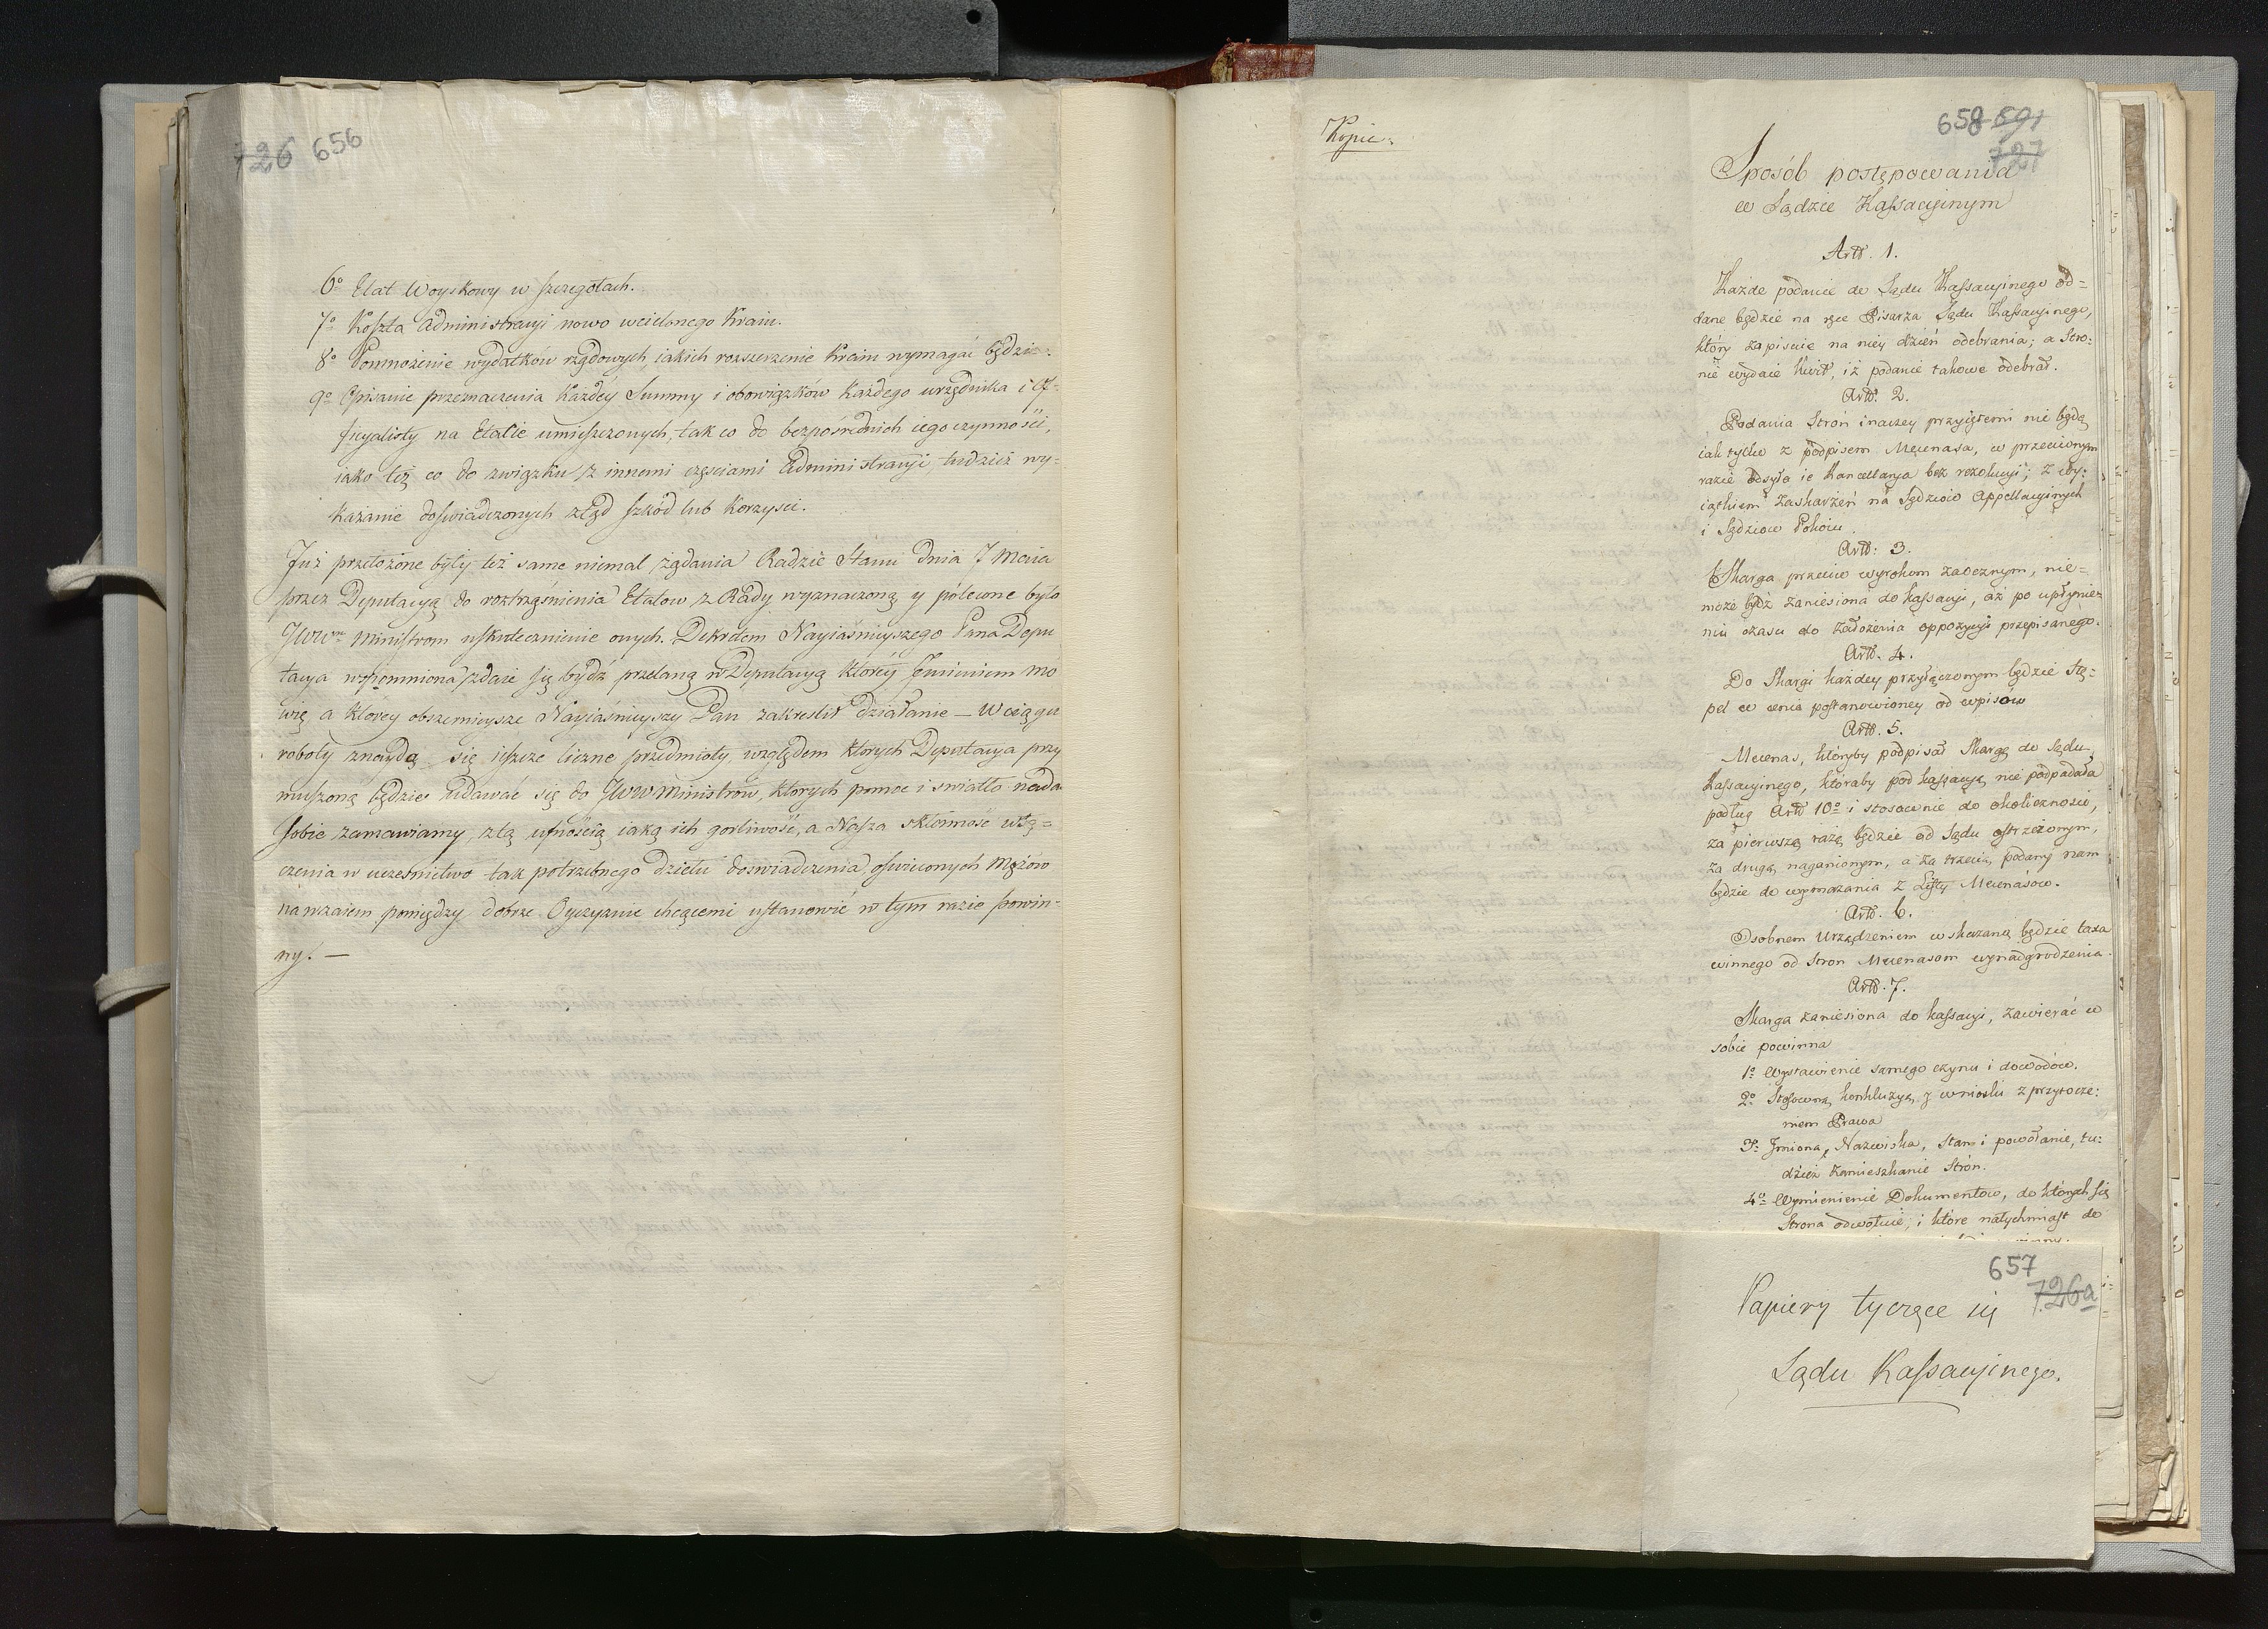 726 656
6º Etat Woyskowy w szczegołach.
7º Koszta Administracyi nowo wcielonego Kraiu.
8º Pomnożenie wydatków rządowych, iakich rozszerzenie Kraiu wymagać będzie.
9º Opisanie przeznaczenia Każdéy Summy i obowiązków każdego urzędnika i Of=
ficyalisty na Etacie umieszczonych, tak co do bezpośrednich iego czynności,
iako też co do związku z innemi częściami Administracyi, tudzież wy=
kazanie doświadczonych ztąd szkód lub korzyści.
Już przełożone były też same niemal żądania Radzie Stanu dnia 7 Maia
przez Deputacyą do roztrząśnienia Etatow z Rady wyznaczoną y polecone było
JWWm Ministrom uskutecznienie onych. Dekretem Nayiaśnieyszego Pana Depu
tacya wspomniona zdaie się bydź przelaną w Deputacyą którey Jmieniem mo
wię a którey obszernieysze Nayiaśnieyszy Pan zakreślił działanie — W ciągu
roboty znaydą się ieszcze liczne przedmioty, względem których Deputacya przy
muszoną będzie udawać się do JWW Ministrów, których pomoc i swiatło nada
sobie zamawiamy, z tą ufnością iaką ich gorliwość, a Nasza skłonność włą=
czenia w uczesnictwo tak potrzebnego dzieła doswiadczenia oświeconych Mężów
nawzaiem pomiędzy dobrze Oyczyznie chcącemi ustanowić w tym razie powin=
ny. —
Kopie.
658 691
727
Sposób postępowania
w Sądzie Kassacyinym
Artt. 1.
Każde podanie do Sądu Kassacyinego od=
dane będzie na ręce Pisarza Sądu Kassacyinego,
który zapisuie na niey dzień odebrania; a Stro:
nie wydaie kwit, iż podanie takowe odebrał.
Artt. 2.
Podania Stron inaczey przyiętemi nie będą
iak tylko z podpisem Mecenasa, w przeciwnym
razie odsyła ie Kancellarya bez rezolucyi; z wy:
iątkiem Zaskarżeń na Sędziów Appellacyinych
i Sędziow Pokoiu.
Artt. 3.
Skarga przeciw wyrokom zaocznym, nie=
może bydź zaniesiona do kassacyi, aż po upłynie=
niu czasu do założenia oppozycyi przepisanego.
Artt. 4.
Do Skargi każdey przyłączonym będzie Stę=
pel w cenie postanowioney od wpisów
Artt. 5.
Mecenas, któryby podpisał Skargę do Sądu
Kassacyinego, któraby pod kassacyą nie podpadała
podług Artt 10º i stosownie do okoliczności,
za pierwszą razą będzie od Sądu ostrzeżonym,
za drugą naganionym, a za trzecią podany nam
będzie do wymazania z Listy Mecenasów.
Artt. 6.
Osobnem Urządzeniem wskazaną będzie taxa
winnego od Stron Mecenasom wynadgrodzenia.
Artt. 7.
Skarga zaniesiona do kassacyi, zawierać w
sobie powinna
1º Wystawienie samego czynu i dowodów.
2º Stosowną konkluzyą, z wniosku z przytocze:
niem Prawa
3º Jmiona, Nazwiska, Stan i powołanie, tu:
dzież zamieszkanie Stron.
4º Wymienienie Dokumentow, do których się
Strona odwołuie, i które natychmiast do
657
726a
Papiery tyczące się
Sądu Kassacyinego.